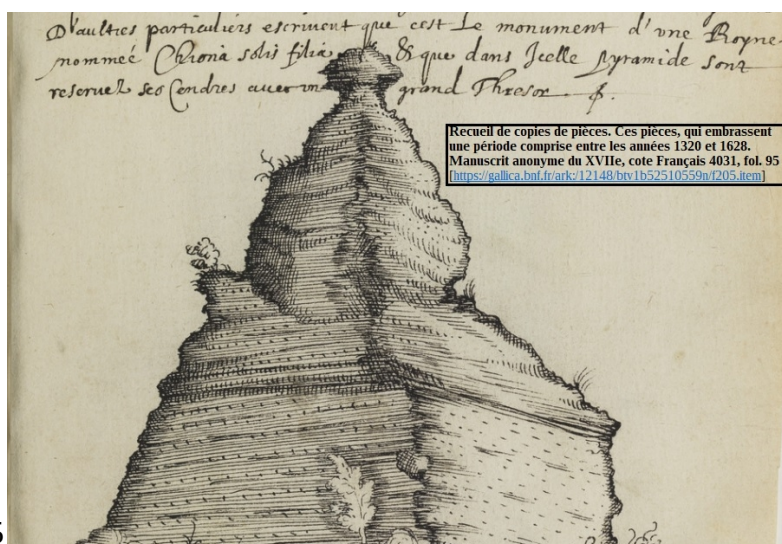 D'aultres particuliers escrivent que c'est Le monument d'une Royne
nommeé Chrona solis filia & que dans Icelle pyramide sont
reservez ses Cendres avec un grand Thresor
Recueil de copies de pièces. Ces pièces, qui embrassent
une période comprise entre les années 1320 et 1628.
Manuscrit anonyme du XVIIe, cote Français 4031, fol. 95
[https://gallica.bnf.fr/ark:/12148/btv1b52510559n/f205.item]